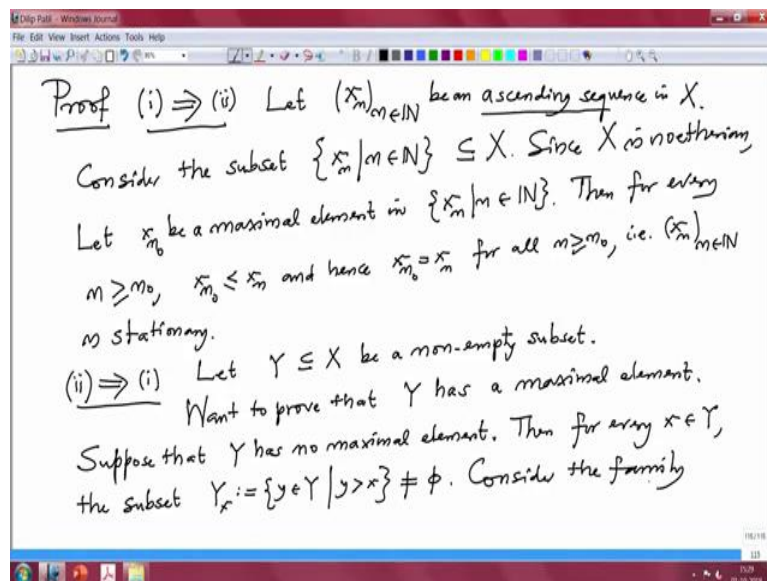 Dilip Patil - Windows Journal
File Edit View Insert Actions Tools Help
Proof (i) ⇒ (ii) Let (x_n)_{n∈ℕ} be an ascending sequence in X.
Consider the subset {x_n | n∈ℕ} ⊆ X. Since X is noetherian,
Let x_{n_0} be a maximal element in {x_n | n∈ℕ}. Then for every
n ≥ n_0, x_{n_0} ≤ x_n and hence x_{n_0} = x_n for all n ≥ n_0, i.e. (x_n)_{n∈ℕ}
is stationary.
(ii) ⇒ (i) Let Y ⊆ X be a non-empty subset.
Want to prove that Y has a maximal element.
Suppose that Y has no maximal element. Then for every x∈Y,
the subset Y_x := {y∈Y | y>x} ≠ φ. Consider the family
15:29